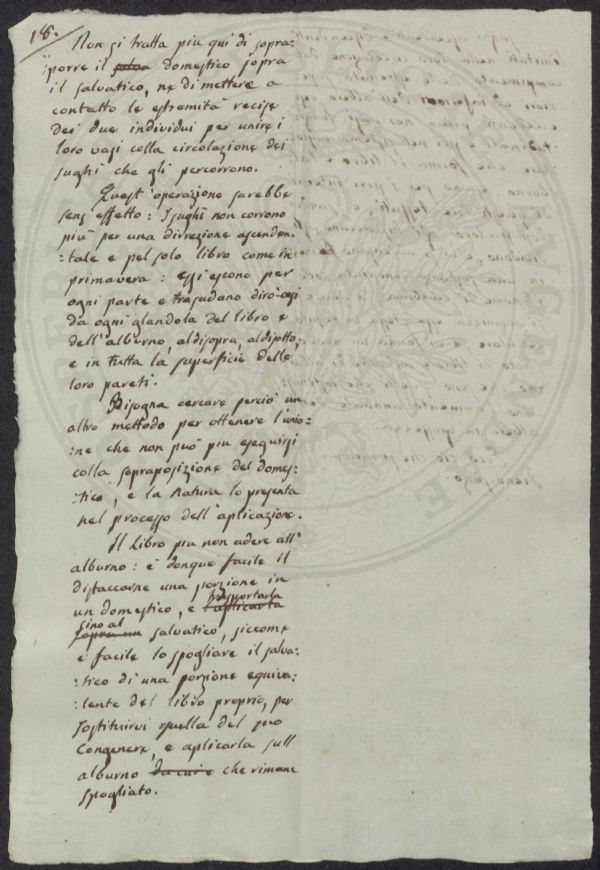 18.
Non si tratta piu qui di sopra:
:porre il domestico sopra
il salvatico, ne di mettere a
contatto le estremità recise
dei due individui per unire i
loro vasi colla circolazione dei
sughi che gli percorrono.
Quest'operazione sarebbe
senz'effetto: I sughi non corrono
più per una direzione ascenden:
:tale e pel solo libro come in
primavera: essi escono per
ogni parte e trasudano dirò così
da ogni glandola del libro e
dell'alburno, al disopra, al disotto,
e in tutta la superficie delle
loro pareti.
Bisogna cercare perciò un
altro mettodo per ottenere l'unio:
:ne che non può piu eseguirsi
colla soprapposizione del domes:
:tico, e la Natura lo presenta
nel processo dell'aplicazione.
Il Libro piu non adere all'
alburno: è donque facile il
distaccarne una porzione in
un domestico, e l'aplicarla trasportarla
sopra un sino al salvatico, siccome
è facile lo spogliare il salva:
:tico di una porzione equiva:
:lente del libro proprio, per
sostituirvi quella del suo
Congenere, e aplicarla sull'
alburno da cui è che rimane
spogliato.